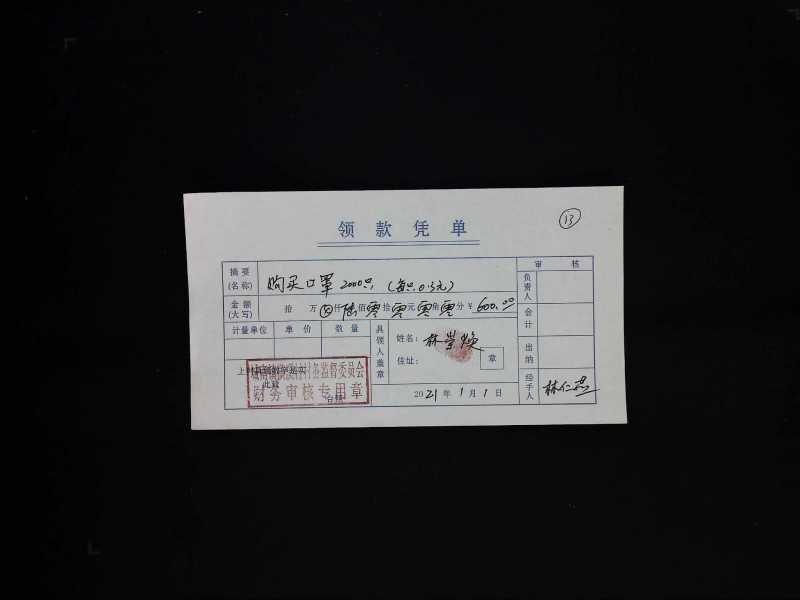 领款凭单
13
摘要(名称) 购买口罩2000只,(每只0.3元) 审核
负责人
金额(大写) 拾万⊗仟陆佰零拾零元零角零分¥600.00
会计
计量单位 单价 数量 具领人盖章 姓名:林
住址: 章
出纳
上列款项数字是实
此致
台照
监督委员会
财务审核专用章
2021年1月1日
经手人 林仁燕